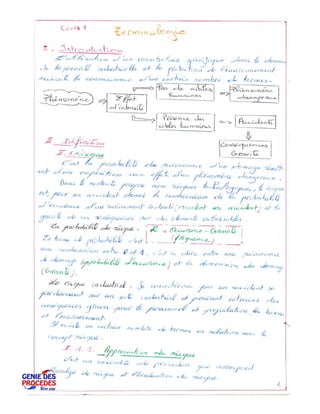 Cours 1
Terminologie
I. Introduction
L'utilisation d'un vocabulaire spécifique dans le domaine
de la sécurité industrielle et la protection de l'environnement
nécessite la connaissance d'un certain nombre de termes.
Phénomène
Effet
d'intensité
Pas de cibles
humaines
Phénomène
dangereux
Présence des
cibles humaines
Accident
Conséquences
Gravité
II. Définition
C'est la possibilité de survenance d'un dommage
d'une exposition aux effets d'un phénomène dangereux.
Dans le contexte propre aux risques technologiques, le risque
est, pour un accident donné, la combinaison de la probabilité
d'occurence d'un
gravité de ses conséquences sur des éléments vulnérables
La probabilité du risque: R = Occurence . Gravité
(fréquence)
En terme de probabilité c'est
une combinaison entre 0 et 1, c'est à dire entre une
de dommage (probabilité d'occurence) et la dimension du dommage
(Gravité).
Le risque industriel: Se
par un accident se
produisant sur un site industriel et pouvant entrainer des
conséquences graves pour le personnel et
et l'environnement.
Il existe un certain nombre de termes en relation avec le
concept risque.
Appréciation du risque
C'est un ensemble de
qui correspond
du risque et l'évaluation du risque.
GENIE DES
PROCEDES